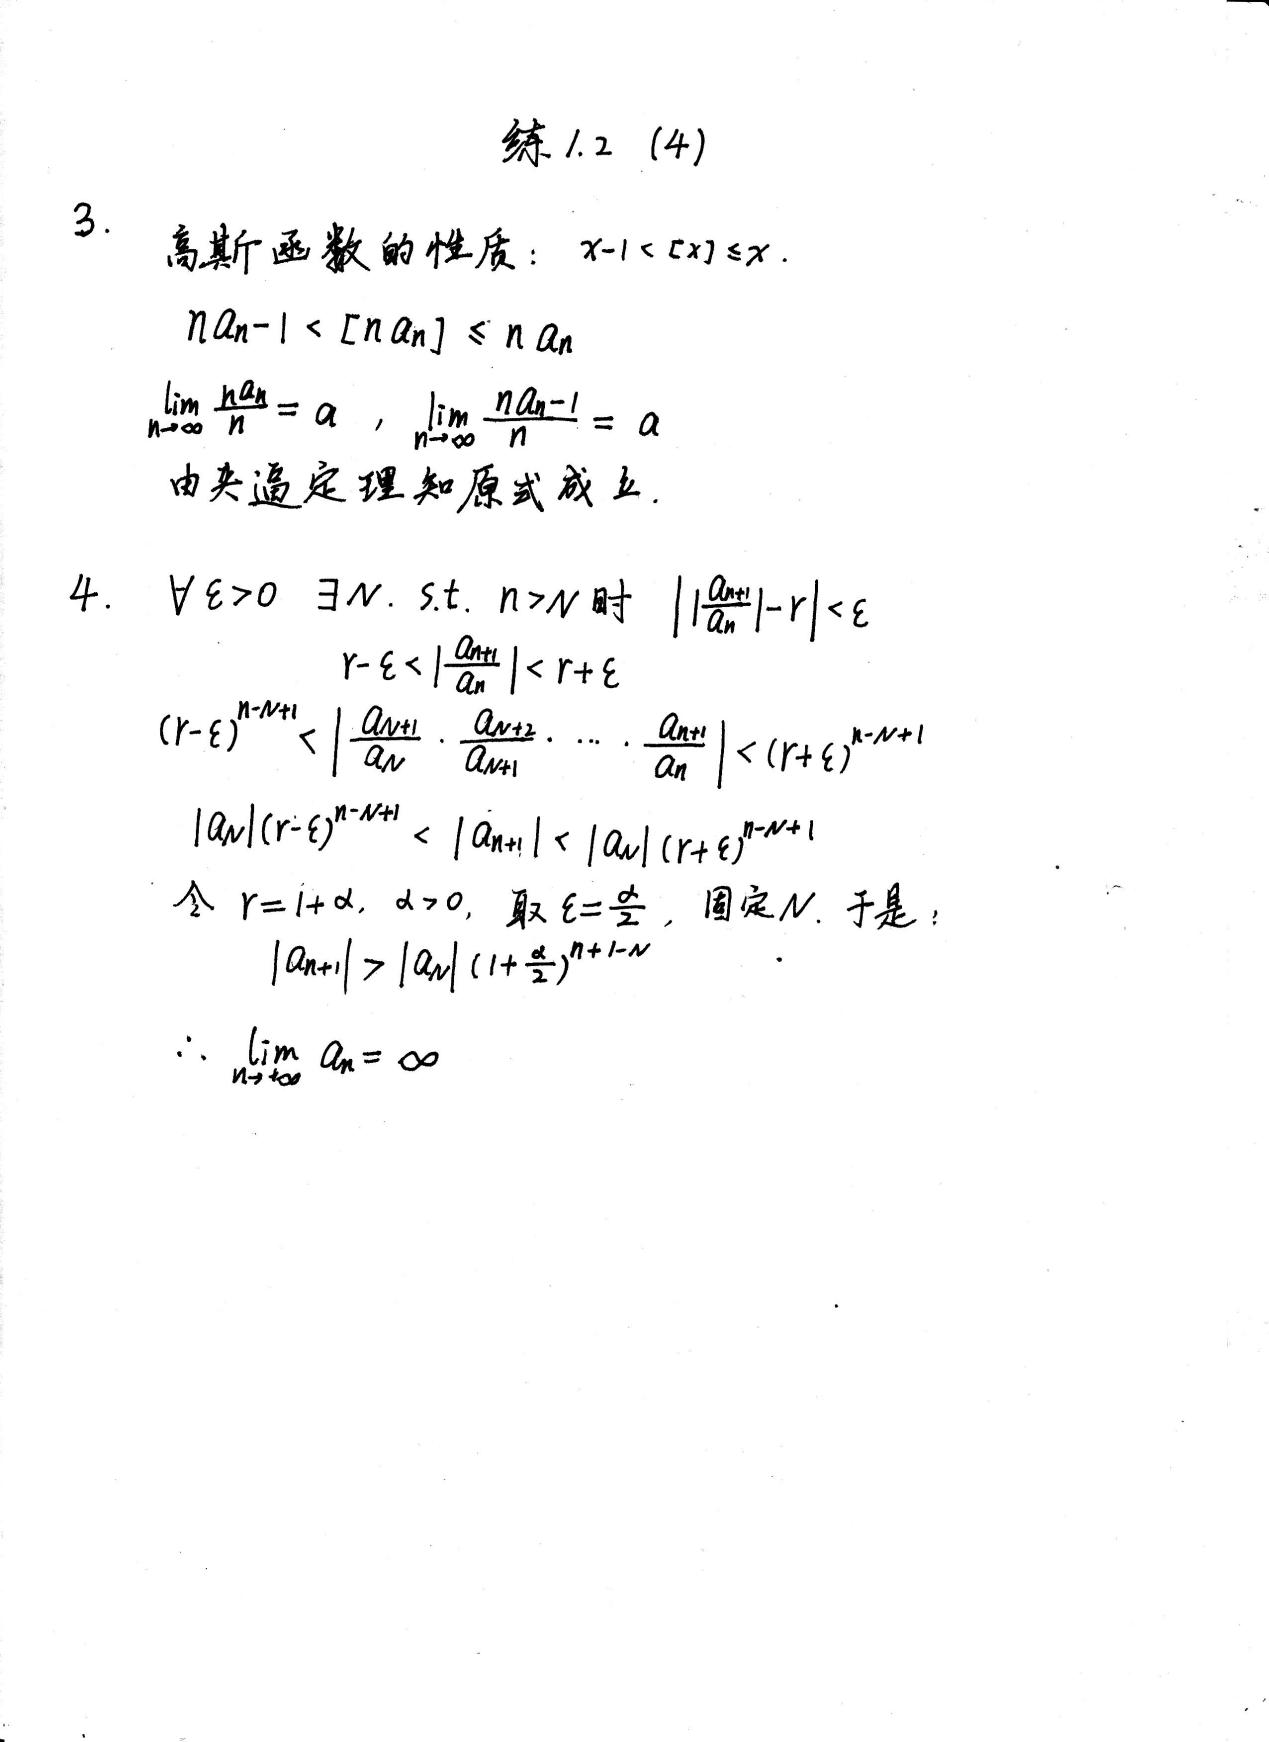 练1.2 (4)
3.
高斯函数的性质: x-1<[x]≤x.
n aₙ-1 < [n aₙ] ≤ n aₙ
lim_{n→∞} \frac{naₙ}{n} = a , lim_{n→∞} \frac{naₙ-1}{n} = a
由夹逼定理知原式成立.
4. ∀ε>0 ∃N. s.t. n>N时 ||\frac{a_{n+1}}{a_n}|-r|<ε
r-ε<|\frac{a_{n+1}}{a_n}|<r+ε
(r-ε)^{n-N+1} < |\frac{a_{N+1}}{a_N} · \frac{a_{N+2}}{a_{N+1}} · … · \frac{a_{n+1}}{a_n}| < (r+ε)^{n-N+1}
|a_N|(r-ε)^{n-N+1} < |a_{n+1}| < |a_N|(r+ε)^{n-N+1}
令 r=1+α, α>0, 取 ε=\frac{α}{2}, 固定N. 于是:
|a_{n+1}| > |a_N|(1+\frac{α}{2})^{n+1-N}
∴ lim_{n→+∞} aₙ = ∞